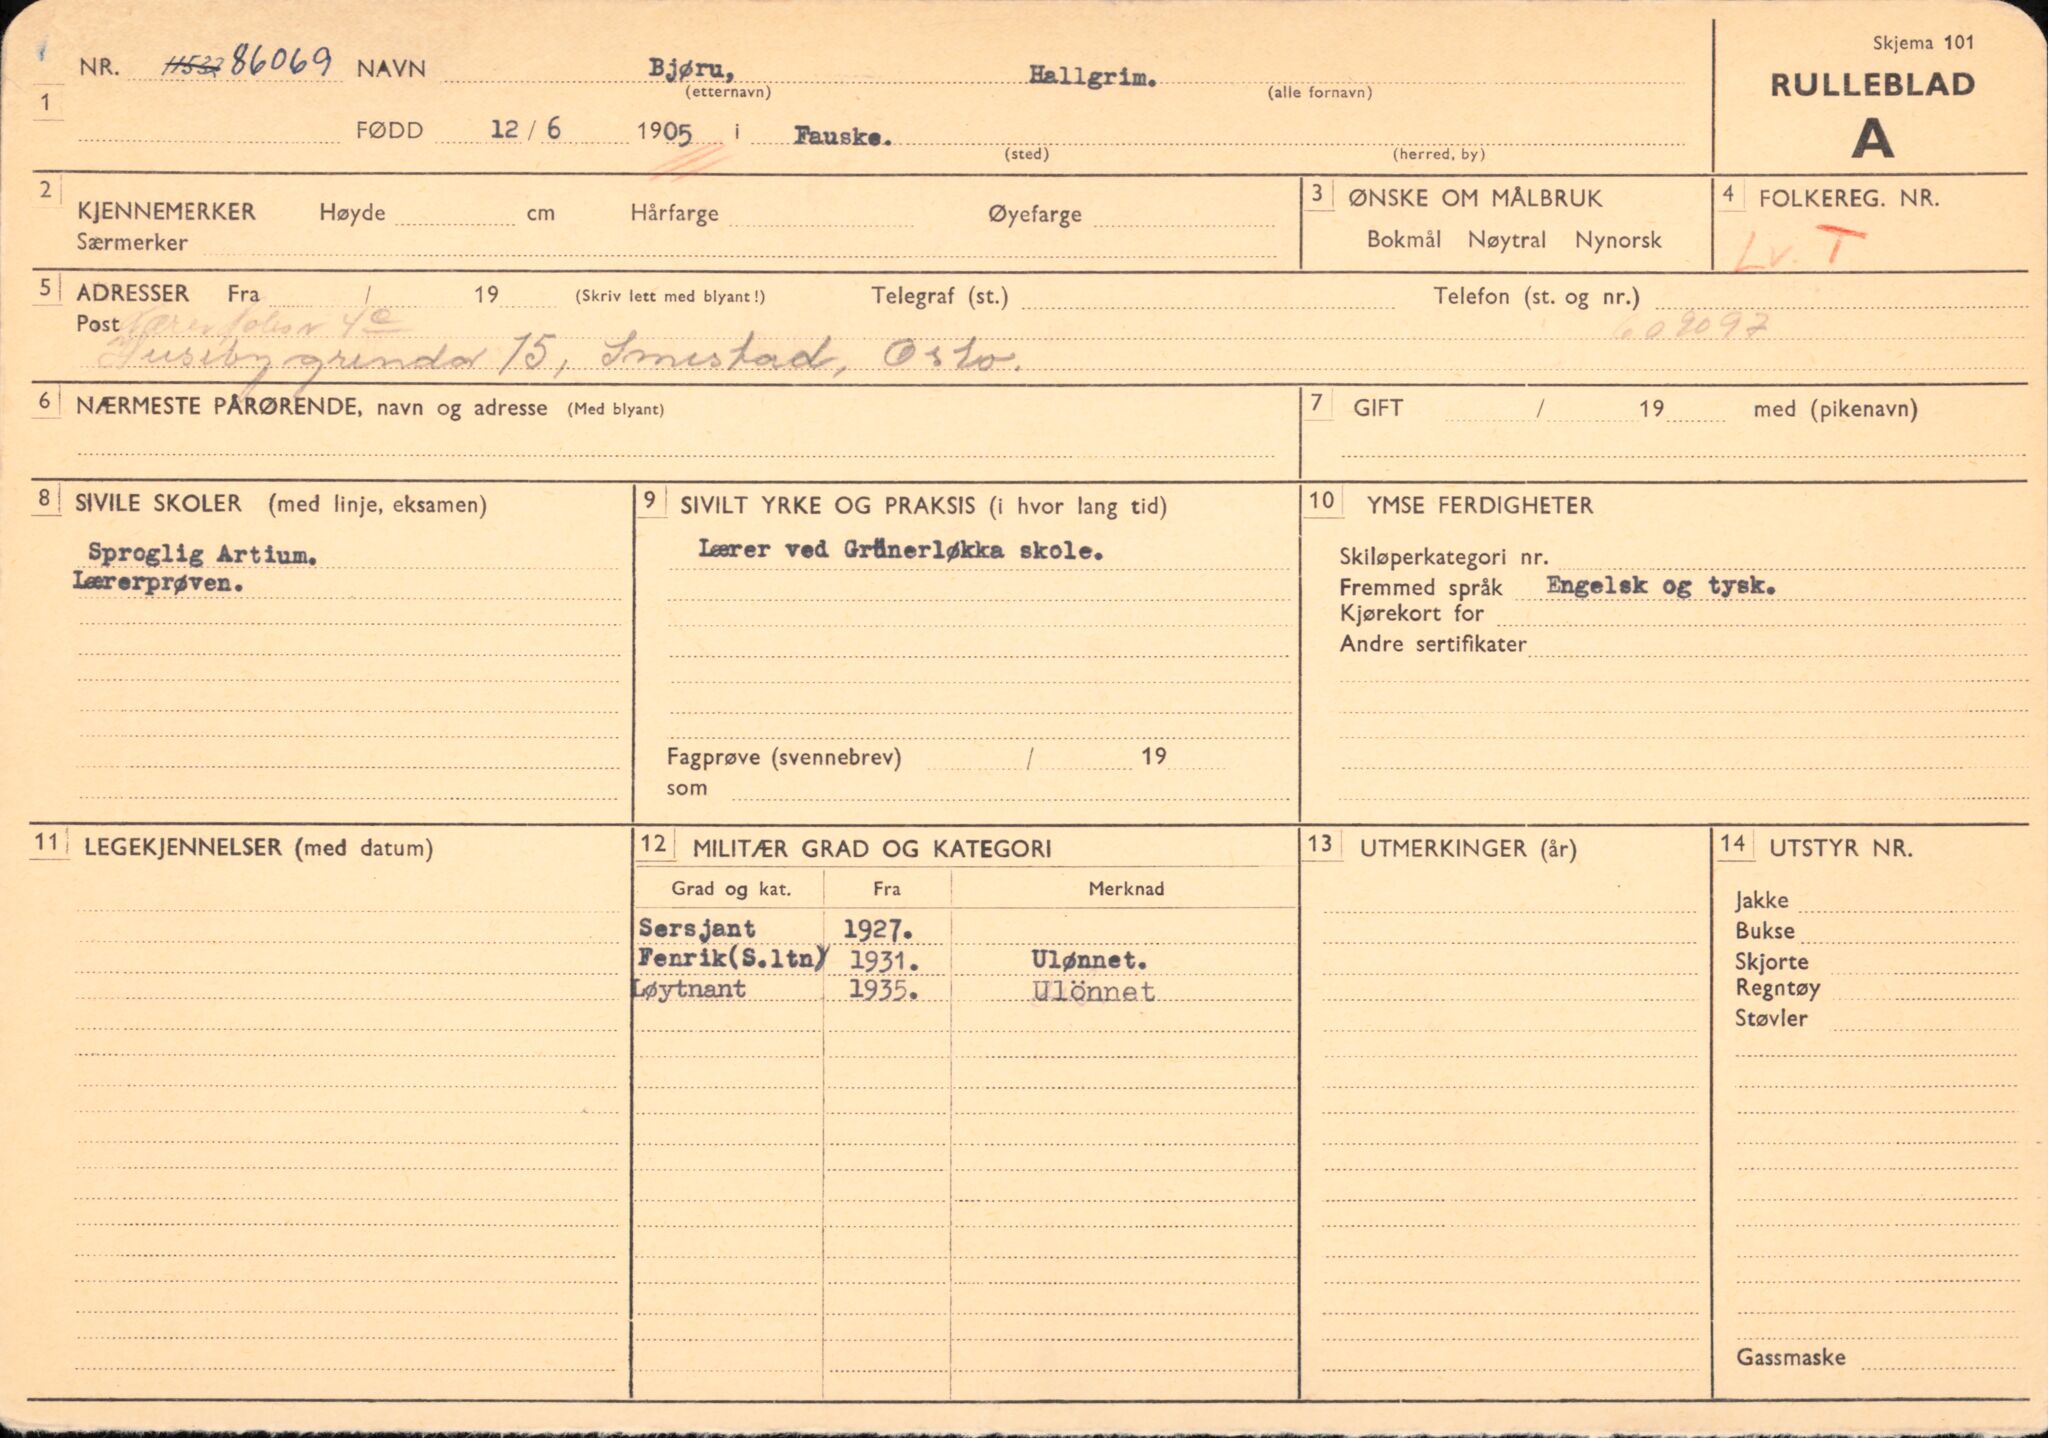 Skjema 101
RULLEBLAD
A
1 NR. 86069 NAVN Bjøru, Hallgrim.
(etternavn) (alle fornavn)
FØDD 12 / 6 1905 i Fauske.
(sted) (herred, by)
2 KJENNEMERKER Høyde cm Hårfarge Øyefarge
Særmerker
3 ØNSKE OM MÅLBRUK
Bokmål Nøytral Nynorsk
4 FOLKEREG. NR.
Lv. T
5 ADRESSER Fra / 19 (Skriv lett med blyant!) Telegraf (st.) Telefon (st. og nr.)
Post 4c 609097
Husebygrenda 15, Smestad, Oslo.
6 NÆRMESTE PÅRØRENDE, navn og adresse (Med blyant)
7 GIFT / 19 med (pikenavn)
8 SIVILE SKOLER (med linje, eksamen)
Sproglig Artium.
Lærerprøven.
9 SIVILT YRKE OG PRAKSIS (i hvor lang tid)
Lærer ved Grünerløkka skole.
Fagprøve (svennebrev) / 19
som
10 YMSE FERDIGHETER
Skiløperkategori nr.
Fremmed språk Engelsk og tysk.
Kjørekort for
Andre sertifikater
11 LEGEKJENNELSER (med datum)
12 MILITÆR GRAD OG KATEGORI
Grad og kat. Fra Merknad
Sersjant 1927.
Fenrik(S.ltn) 1931. Ulønnet.
Løytnant 1935. Ulönnet
13 UTMERKINGER (år)
14 UTSTYR NR.
Jakke
Bukse
Skjorte
Regntøy
Støvler
Gassmaske